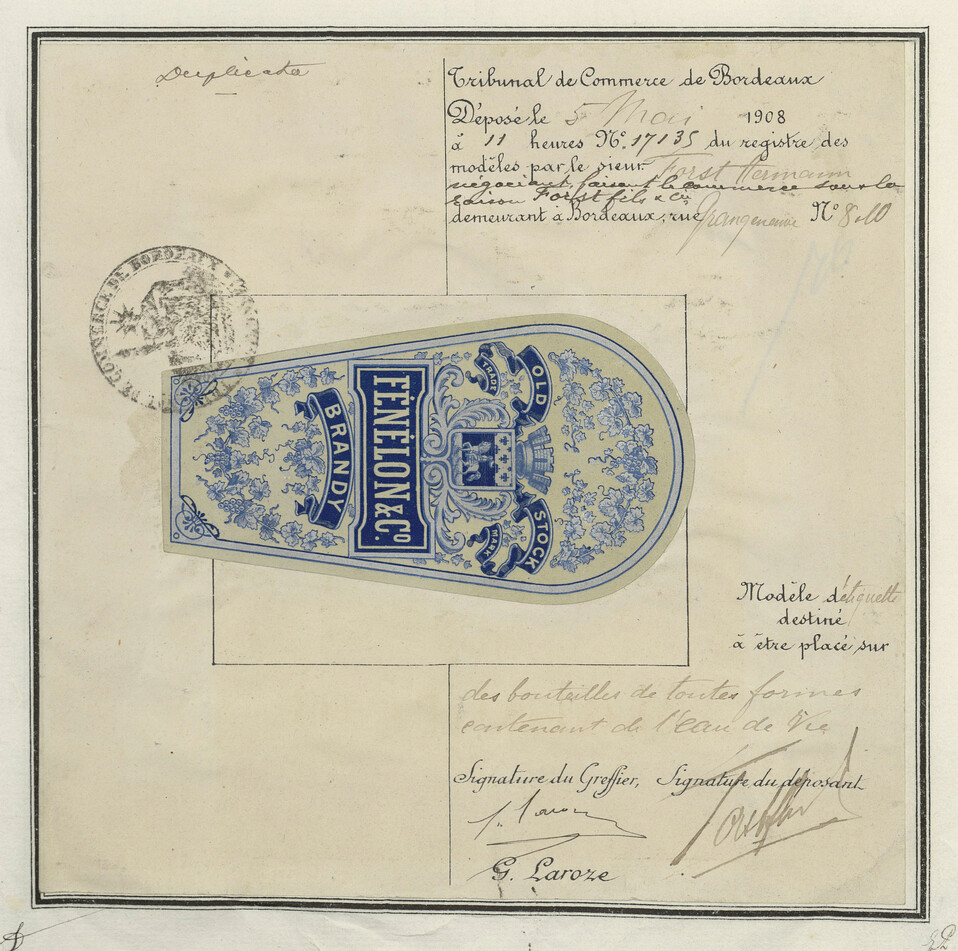 Duplicata
Tribunal de Commerce de Bordeaux
Déposé le 5 Mai 1908
à 11 heures N°. 17135 du registre des
modèles par le sieur Forst Hermann
négociant, faisant le commerce sous la
raison Forst fils & Cie
demeurant à Bordeaux, rue Grangeneuve N° 8 10
DE COMMERCE DE BORDEAUX
OLD
STOCK
TRADE
MARK
FÉNÉLON & Co.
BRANDY
Modèle d'étiquette
destiné
à être placé sur
des bouteilles de toutes formes
contenant de l'eau de Vie
Signature du Greffier, Signature du déposant
G. Laroze